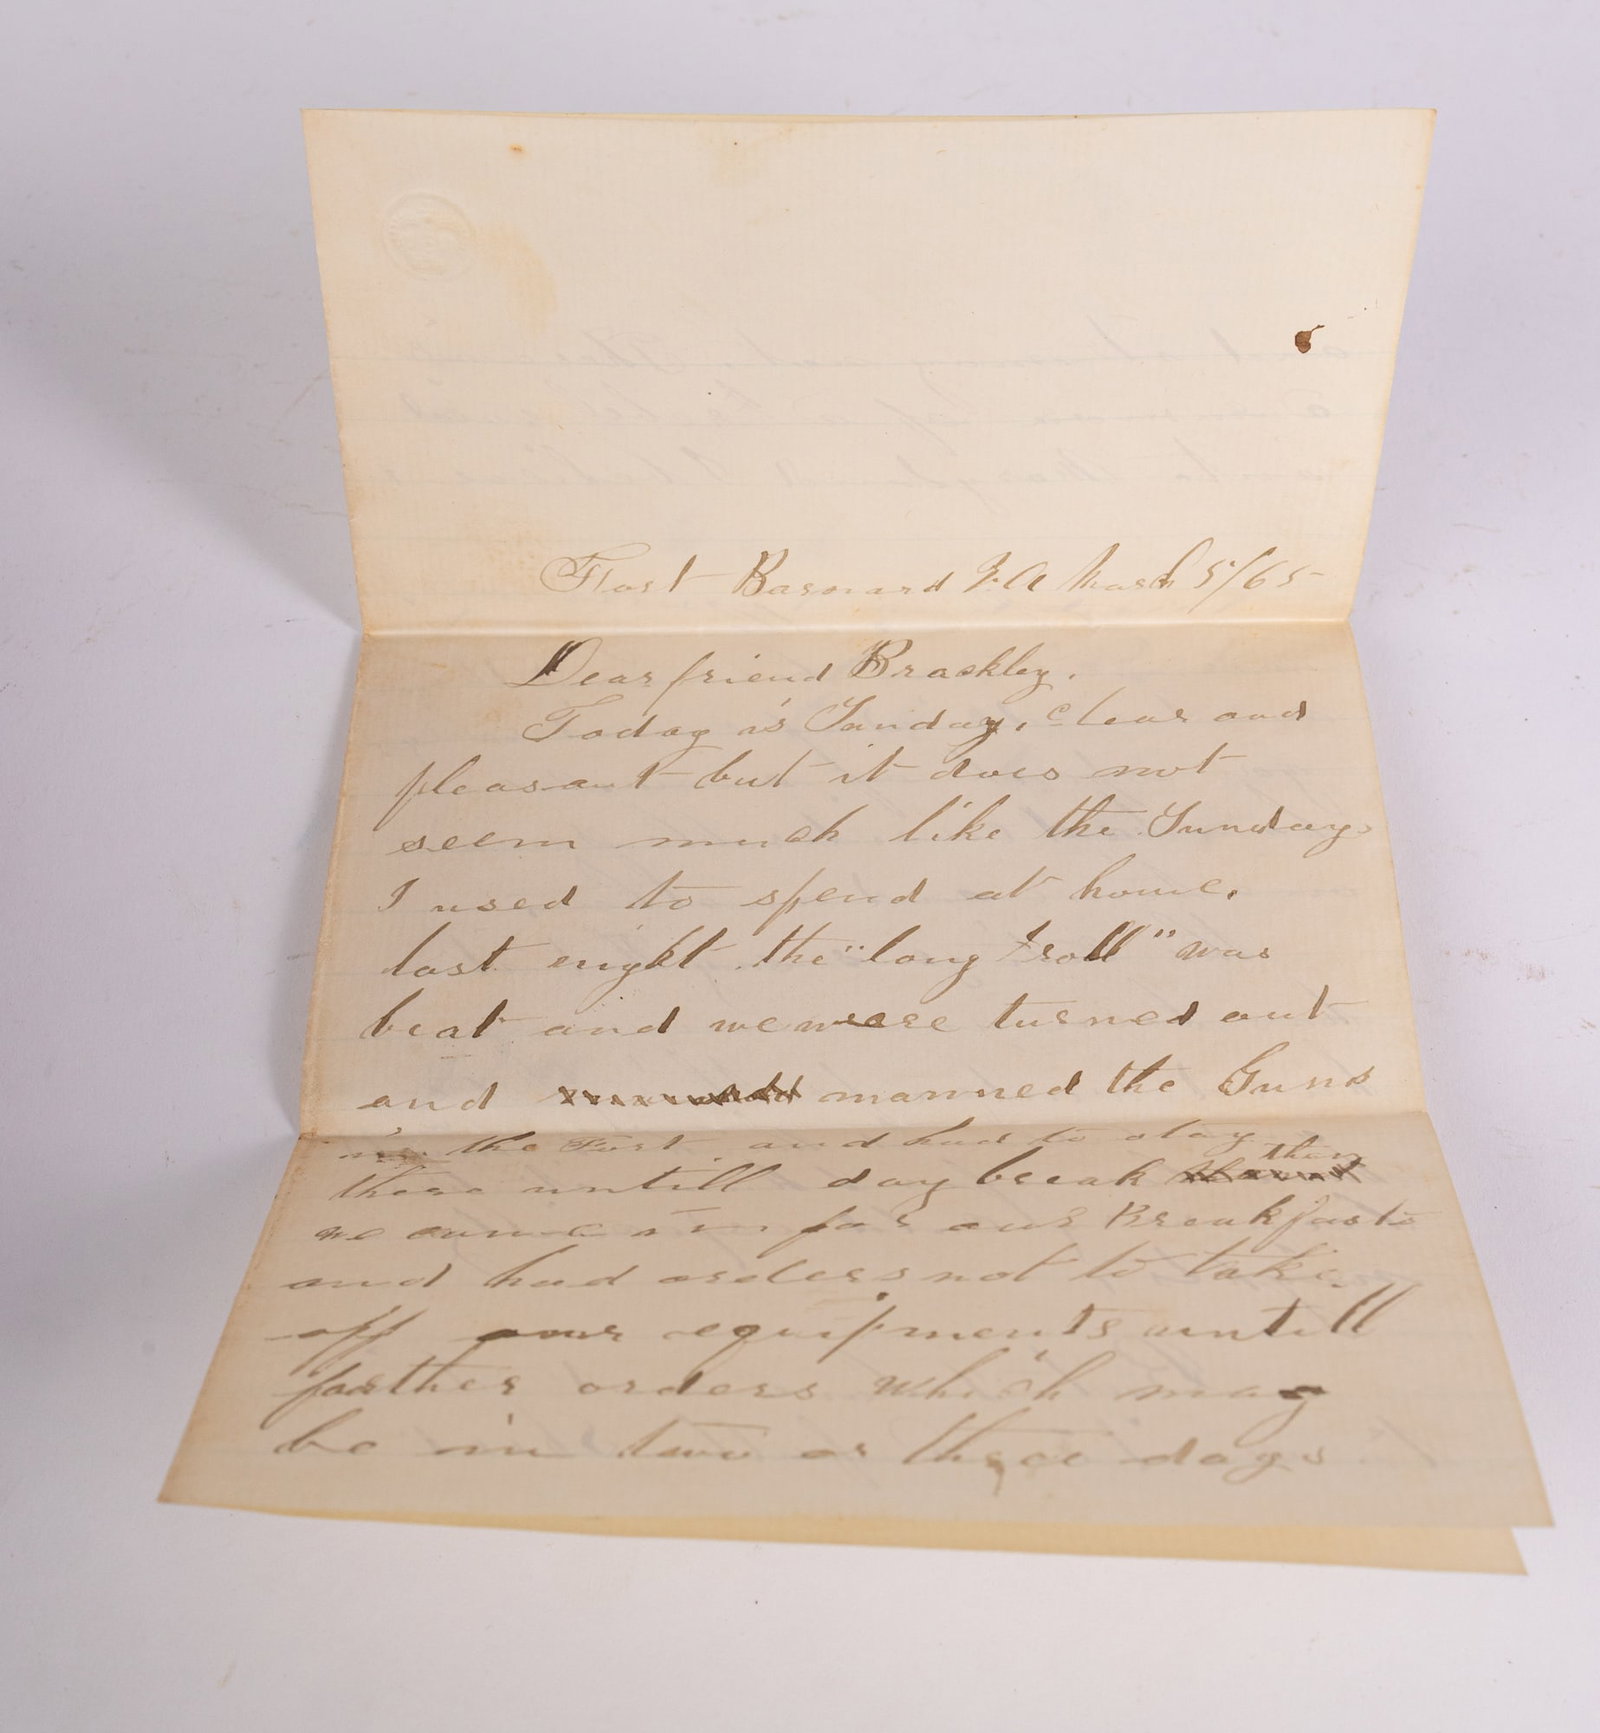 Fort Barnard V.A March 5/65
Dear friend Brackley.
Today is Sunday, clear and
pleasant but it does not
seem much like the Sundays
I used to spend at home.
last night the "long roll" was
beat and we were turned out
and manned the Guns
in the Fort and had to stay
there untill day break then
we came in for our Breakfasts
and had orders not to take
off our equipments untill
farther orders which may
be in two or three days